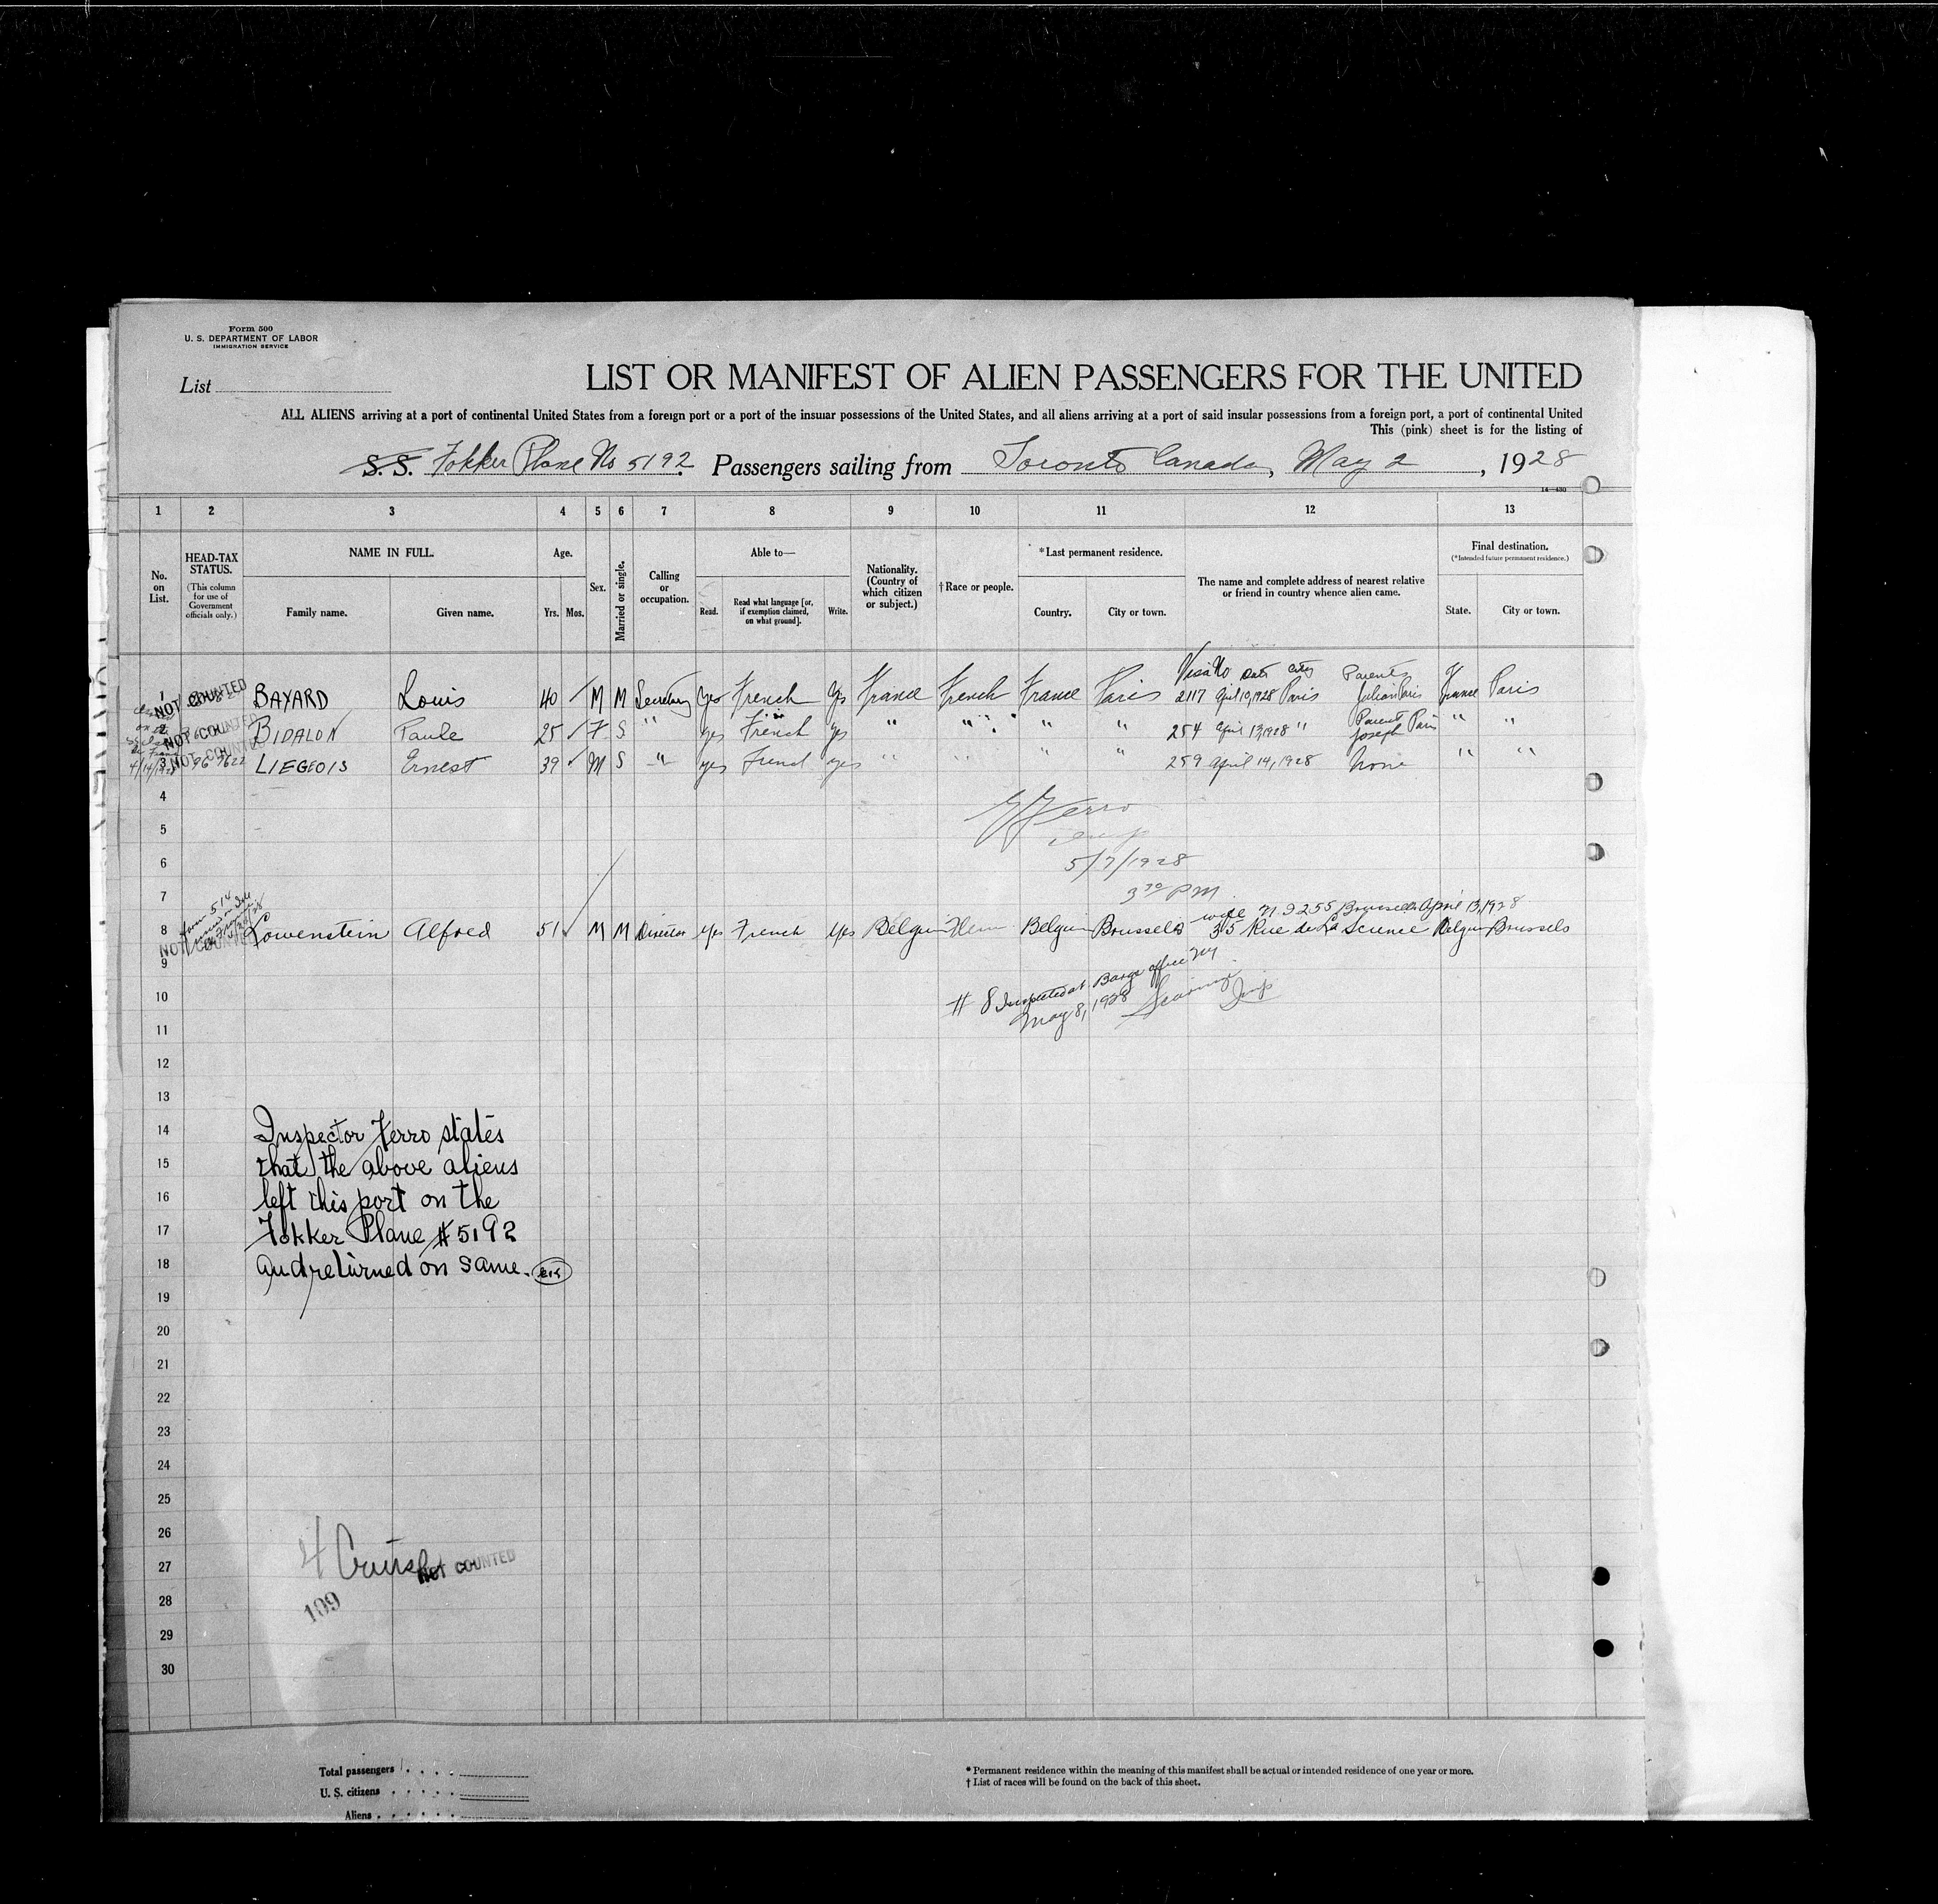 Form 500
U. S. DEPARTMENT OF LABOR
IMMIGRATION SERVICE
List
LIST OR MANIFEST OF ALIEN PASSENGERS FOR THE UNITED
ALL ALIENS arriving at a port of continental United States from a foreign port or a port of the insuar possessions of the United States, and all aliens arriving at a port of said insular possessions from a foreign port, a port of continental United
This (pink) sheet is for the listing of
S.S. Fokker Plane No 5192 Passengers sailing from Toronto Canada, May 2, 1928
14—430
1 2 3 4 5 6 7 8 9 10 11 12 13
No. on List.
HEAD-TAX STATUS.
(This column for use of Government officials only.)
NAME IN FULL.
Family name. Given name.
Age.
Yrs. Mos.
Sex.
Married or single.
Calling or occupation.
Able to—
Read. Read what language [or, if exemption claimed, on what ground]. Write.
Nationality. (Country of which citizen or subject.)
†Race or people.
*Last permanent residence.
Country. City or town.
The name and complete address of nearest relative or friend in country whence alien came.
Final destination.
(*Intended future permanent residence.)
State. City or town.
Visa No Date City Parents
1 NOT COUNTED BAYARD Louis 40 M M Secretary Yes French Yes France French France Paris 2117 April 10, 1928 Paris Julian Paris France Paris
2 NOT COUNTED BIDALON Paule 25 F S " yes French yes " " " " 254 April 13, 1928 " Parent Joseph Paris " "
3 NOT COUNTED LIEGEOIS Ernest 39 M S " yes French yes " " " " 259 April 14, 1928 None " "
4/14/1928
4
5
6
7
Ferro
Insp
5/7/1928
3 30 PM
form 514
wife 9255 Brussels April 13, 1928
8 NOT COUNTED Lowenstein Alfred 51 M M Director Yes French Yes Belgium Flem Belgium Brussels 35 Rue de La Science Belgium Brussels
9
10
11
# 8 Inspected at Barge office NY
May 8, 1928 Insp
12
13
14 Inspector Ferro states
15 that the above aliens
16 left this port on the
17 Fokker Plane #5192
18 and returned on same.
19
20
21
22
23
24
25
26
27
28
29
30
4
NOT COUNTED
109
Total passengers
U. S. citizens
Aliens
* Permanent residence within the meaning of this manifest shall be actual or intended residence of one year or more.
† List of races will be found on the back of this sheet.